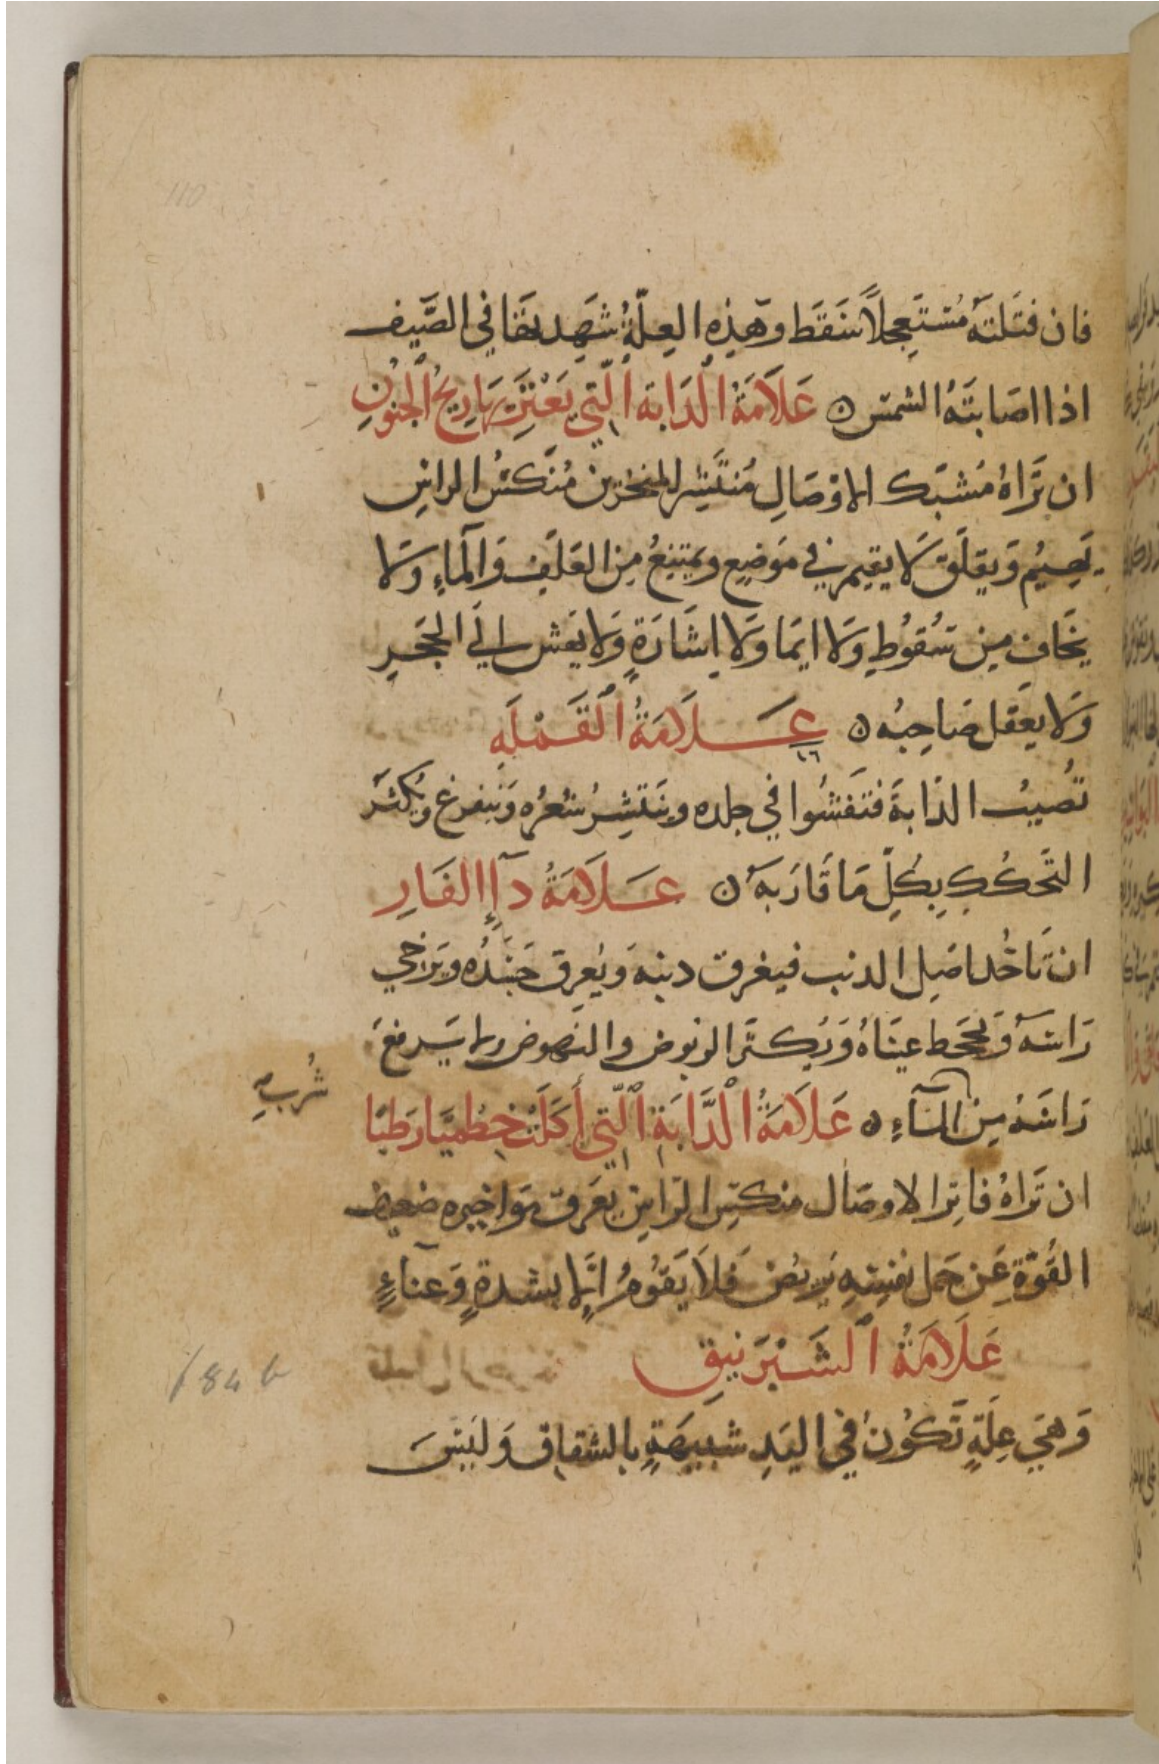 110
فان فتلته مُستَعجلاً سَقَط وهَذِه العِلّةُ شهد بها في الصَّيف
اذا اصَابَتهُ الشمس ن عَلَامَةُ الدَابة الّتي يَعْتَرِيهَا رِيحُ الجُنُونِ
ان تَراهُ مُشبّك الاوْصَالِ مُنتَشِر المنخرين مُنَكسُ الراسِ
يَهِيمُ وَيقلَق لَا يقيم في مَوَضِع ويمتنِعُ مِن العَلَف وَالمآءِ وَلا
يخَاف مِن سُقوُطٍ وَلَا ايمَا وَلَا اِشَارَةٍ وَلَا يَعْش الي الحجَر
وَلا يعقل صَاحِبُه ن عَلَامَةُ القَمْلَه
تُصيبُ الدَابةَ فَتَفشُوا في جلده وينَتشِرُ شعرُه وَيتفرغ وَيُكثر
التَحكُكِ بِكلِّ مَا قَارَبهَ ن عَلَامَةُ دآإِ الفَارِ
ان تَاخُد اصَل الدنب فيغرق دنبه وَيُعرق جَسَدُه ويَرخي
رَاسَهُ وَتجحظ عينَاهُ وَيُكثر الربوض والنهوض ولا يَرفع
رَاسَهُ مِن المآءِ ن عَلَامَةُ الدَّابَةِ الّتي أَكَلَتْ خِطْميَا رَطبَا
شُربِ
ان تَراهُ فاتِر الاوصَال منكسِ الراسِ يَعرَق مَواخِيره ضعيف
القُوَّةِ عَن حَمل نفسِهِ يَربضُ فَلَا يَقوُمُ اِلا بشدةٍ وَعنآءٍ
عَلَامَةُ الشَبْرَنيق
184 b
وَهيَ عِلَةٍ تَكوُنُ في اليَدِ شبيهَةٍ بالشقاق وَليسَ